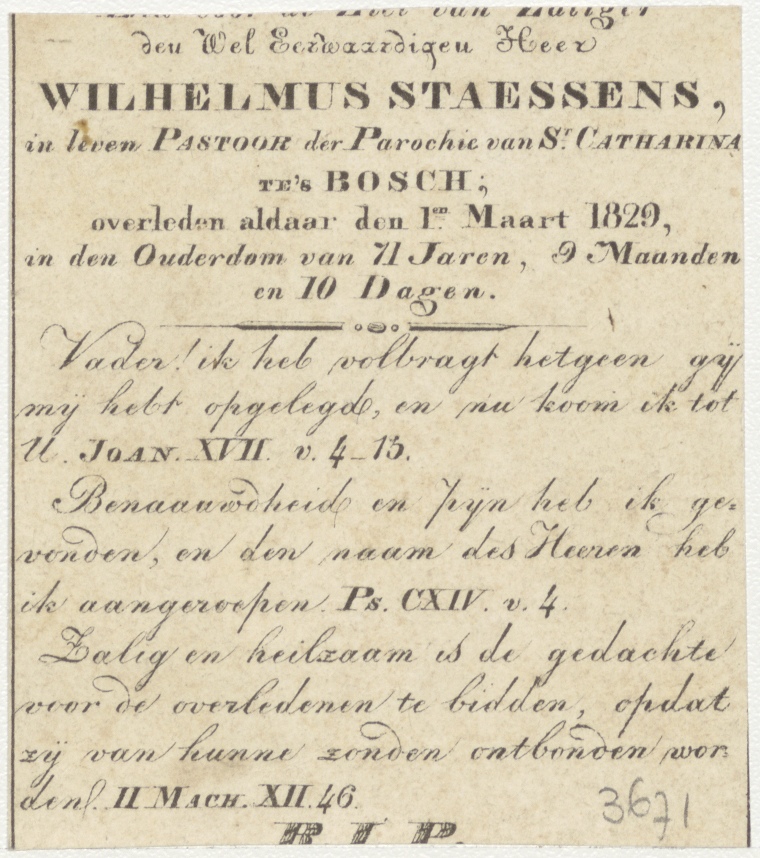 Bidt voor de Ziel van Zaliger
den Wel Eerwaardigen Heer
WILHELMUS STAESSENS,
in leven PASTOOR der Parochie van St. CATHARINA
TE'S BOSCH;
overleden aldaar den 1en Maart 1829,
in den Ouderdom van 71 Jaren, 9 Maanden
en 10 Dagen.
Vader! ik heb volbragt hetgeen gij
mij hebt opgelegd, en nu koom ik tot
U. JOAN. XVII. v. 4_13.
Benaauwdheid en pijn heb ik ge=
vonden, en den naam des Heeren heb
ik aangeroepen. Ps. CXIV. v. 4.
Zalig en heilzaam is de gedachte
voor de overledenen te bidden, opdat
zij van hunne zonden ontbonden wor
den. II MACH. XII. 46.
R. I. P.
3671